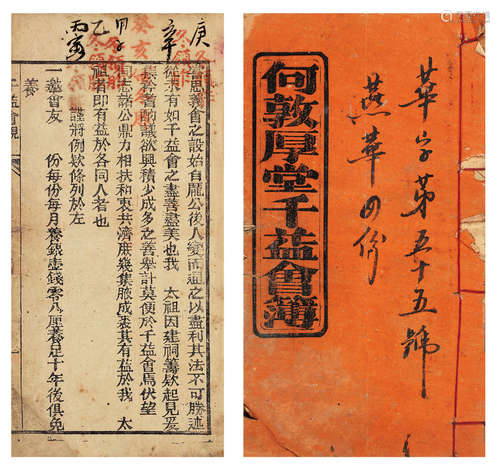 華字第五十五號
燕華四份
何敦厚堂千益會簿
庚
辛
癸亥
甲子
乙
丙寅
義會之設始自龐公後人變而通之以盡利其法不可勝述
從未有如千益會之盡善盡美也我 太祖因建祠籌欵起見爰
集衿耆酌議欲興積少成多之善舉計莫便於千益會焉伏望
同志諸公鼎力相扶和衷共濟庶幾集腋成裘其有益於我 太
祖者即有益於各同人者也
謹將例欵條列於左
一邀會友 份每份每月養銀壹錢零八厘養足十年後俱免
養
千益會規